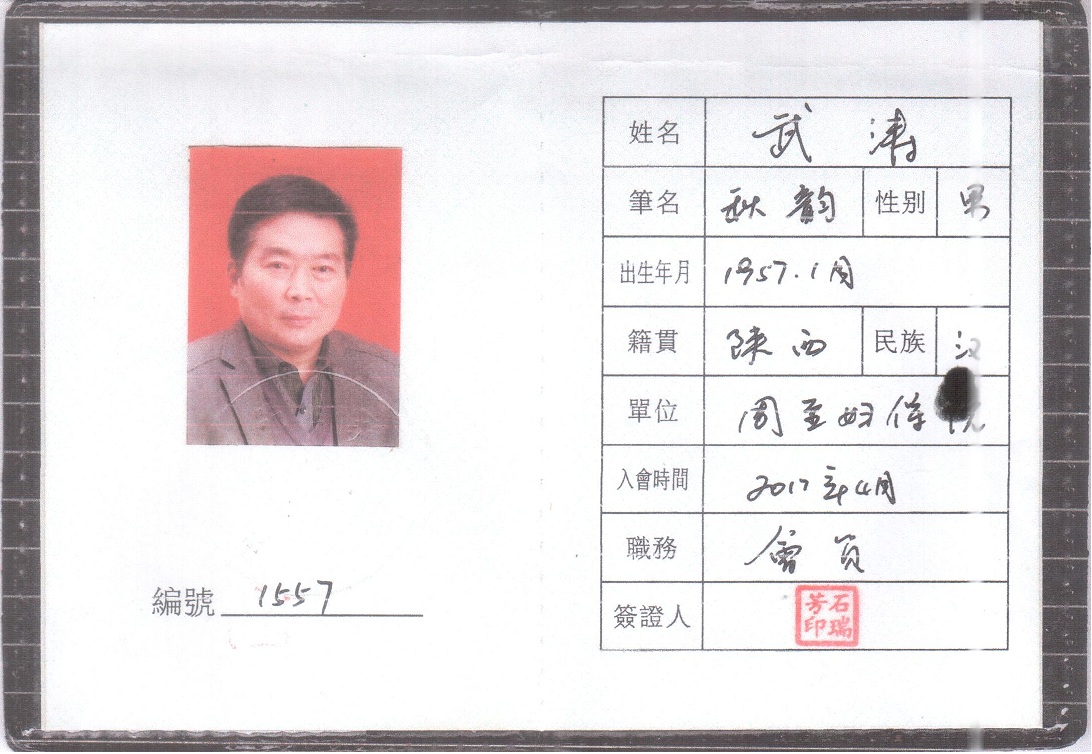 姓名 武涛
筆名 秋韵 性别 男
出生年月 1957.1月
籍貫 陕西 民族 汉
單位 周至妇保院
入會時間 2017年4月
職務 會员
簽證人 石瑞芳印
編號 1557